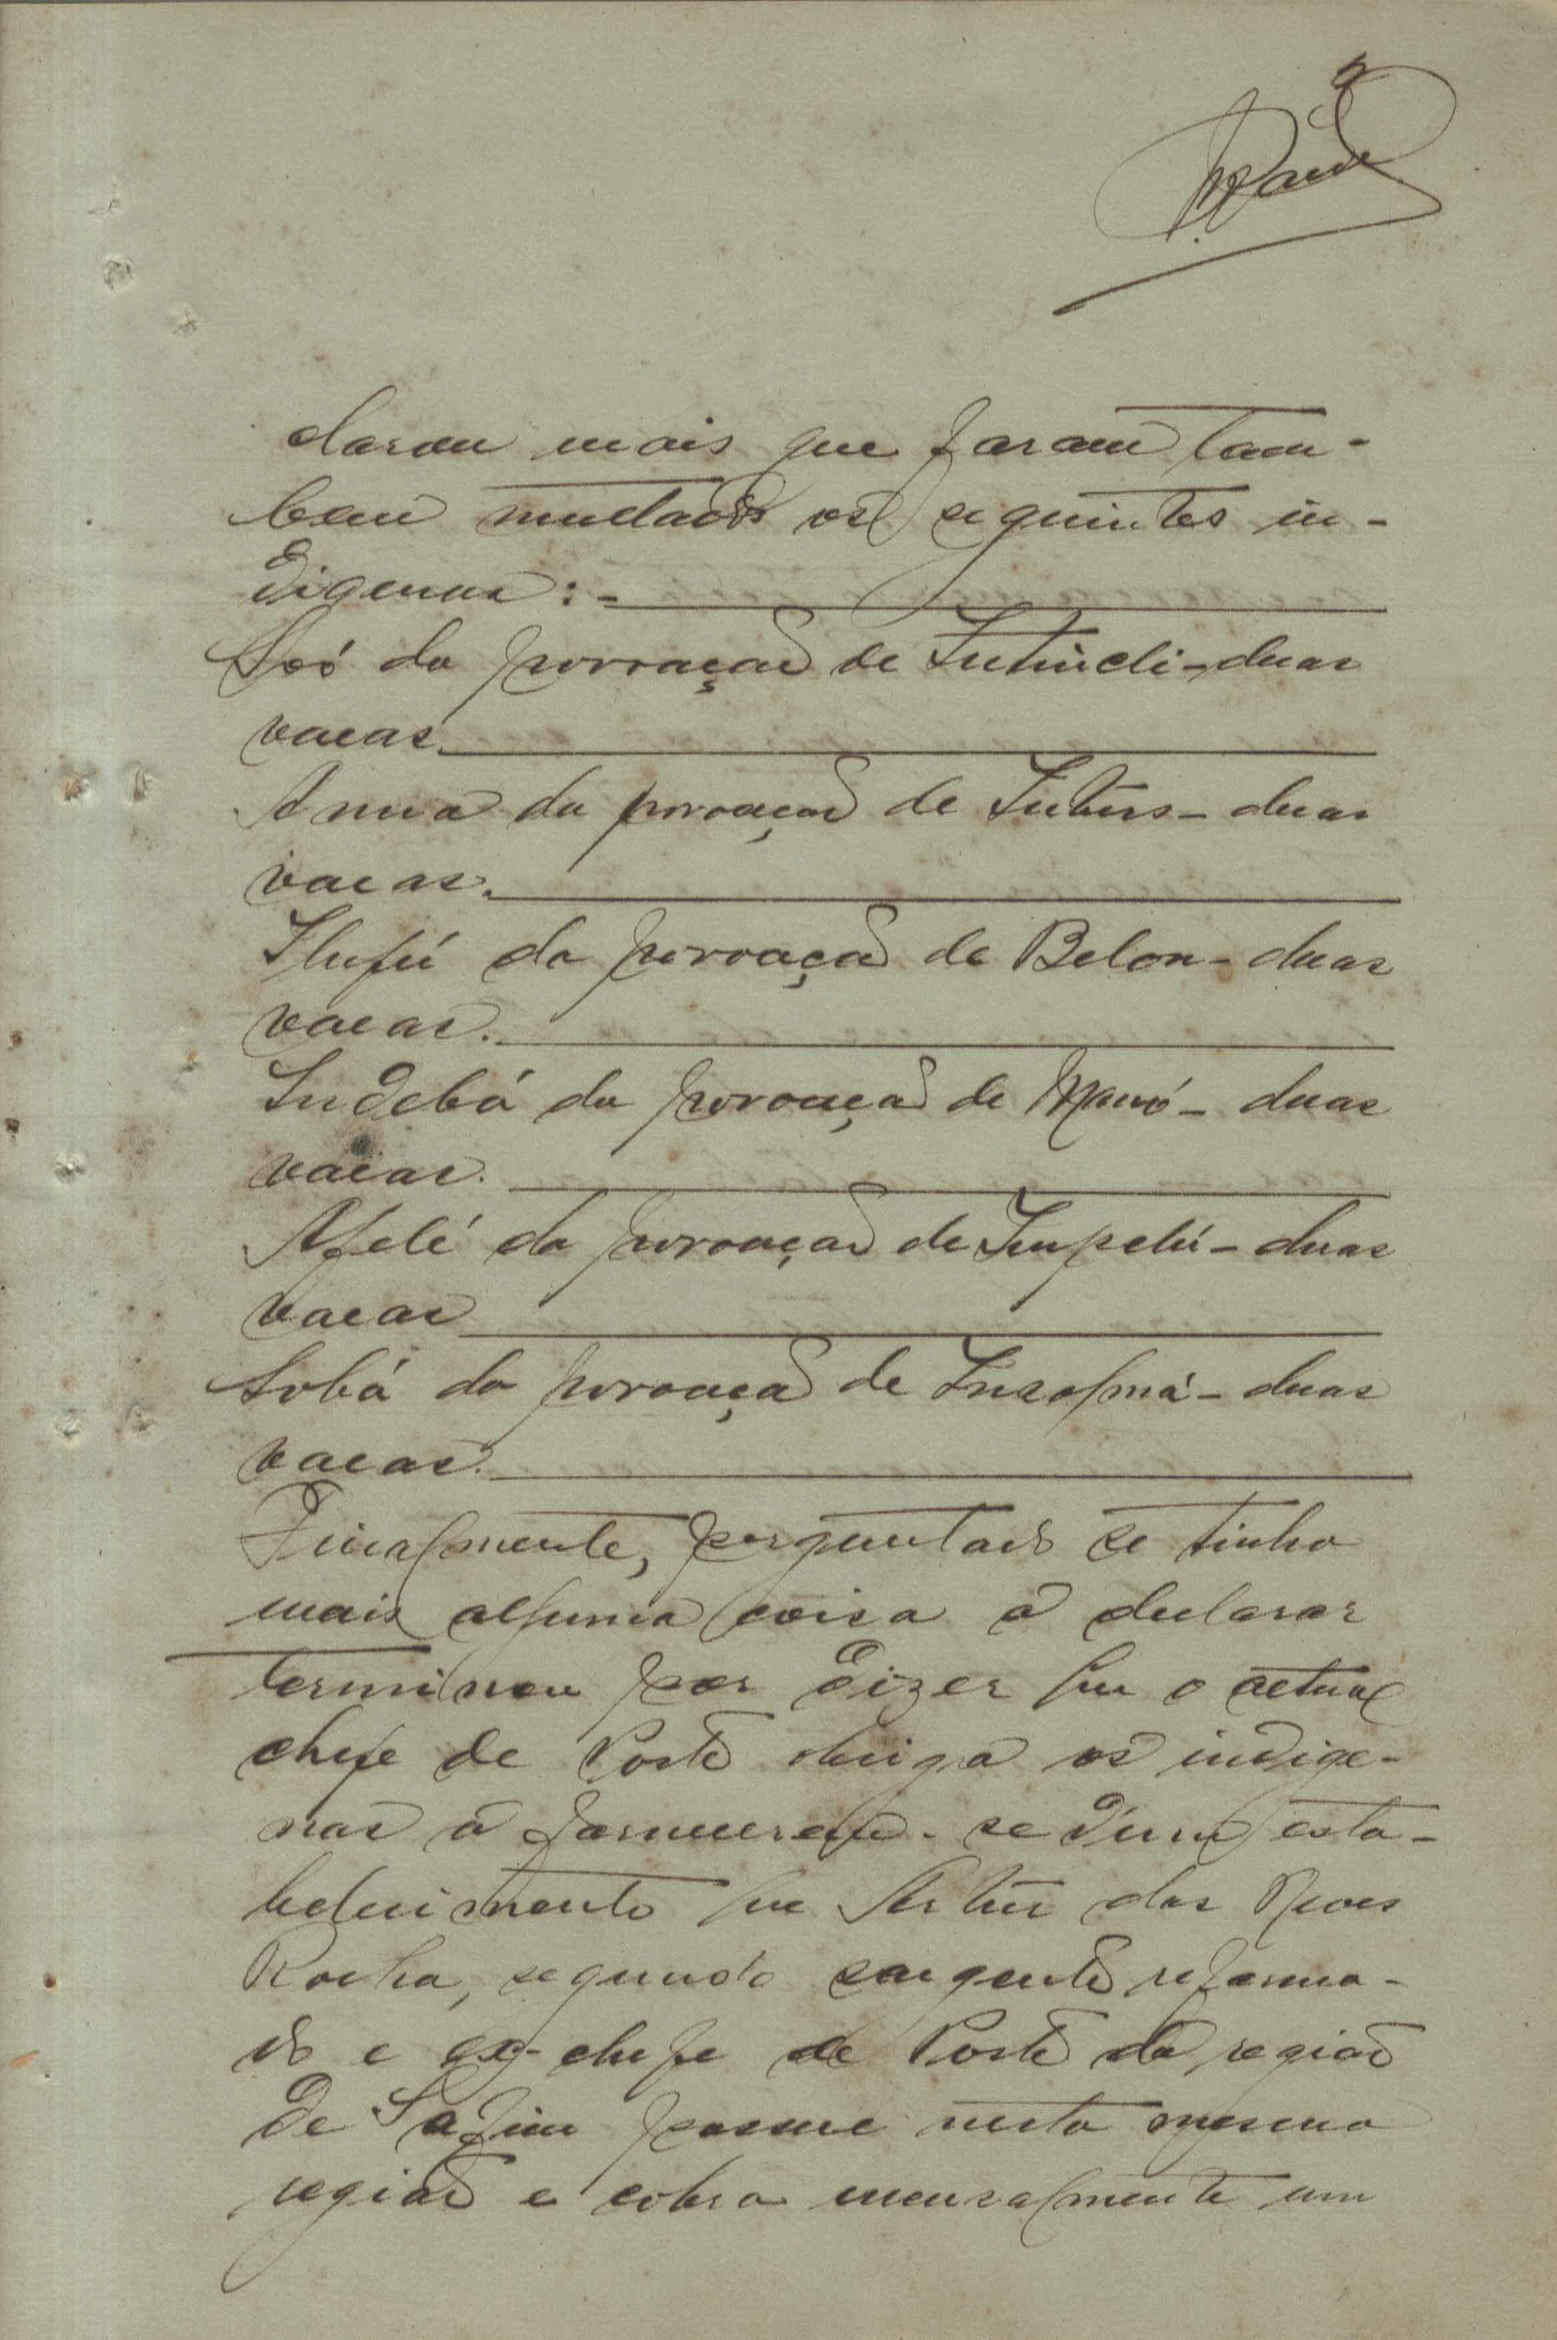 clarou mais que foram tam-
bem multados os seguintes in-
digenas:-
da povoação de duas
vacas.
da povoação de duas
vacas.
da povoação de Belon - duas
vacas.
Indebá da povoação de duas
vacas.
Afelé da povoação de duas
vacas
Sobá da povoação de - duas
vacas.
Finalmente, perguntado se tinha
mais alguma coisa a declarar
terminou por dizer que o actual
chefe de Posto obriga os indige-
nas a fornecerem-se d'um esta-
belecimento que Artur das Neves
Rocha, segundo sargento reforma-
do e ex-chefe de Posto da região
de Safim possue nesta mesma
região e cobra mensalmente um